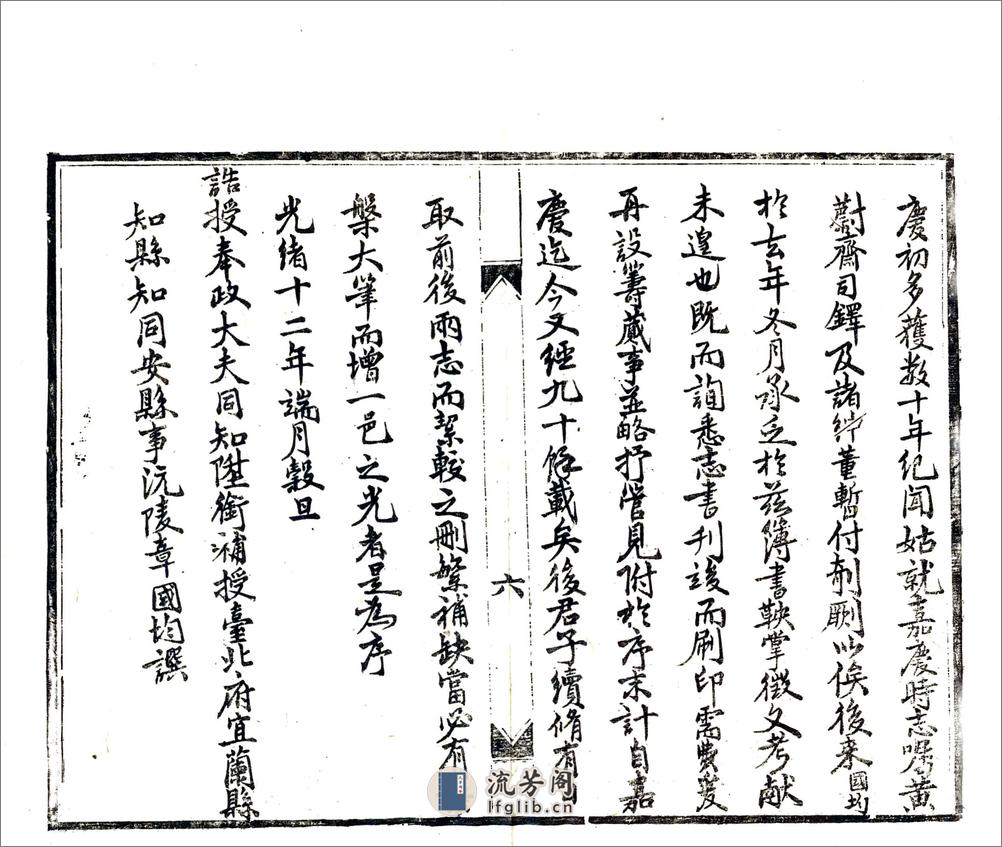 慶初多穫數十年紀聞姑就嘉慶時志囑黃
蔚齋司鐸及諸紳董暫付剞劂以俟後來國均
於去年冬月承乏於茲簿書鞅掌徵文考獻
未遑也既而詢悉志書刊竣而刷印需費爰
再設籌蕆事並略抒管見附於序末計自嘉
慶迄今又經九十餘載矣後君子續脩有
六
取前後兩志而絜較之刪繁補缺當必有
槃大筆而增一邑之光者是為序
光緒十二年端月穀旦
誥授奉政大夫同知陞銜補授臺北府宜蘭縣
知縣知同安縣事沅陵章國均譔
流芳阁
lfglib.cn